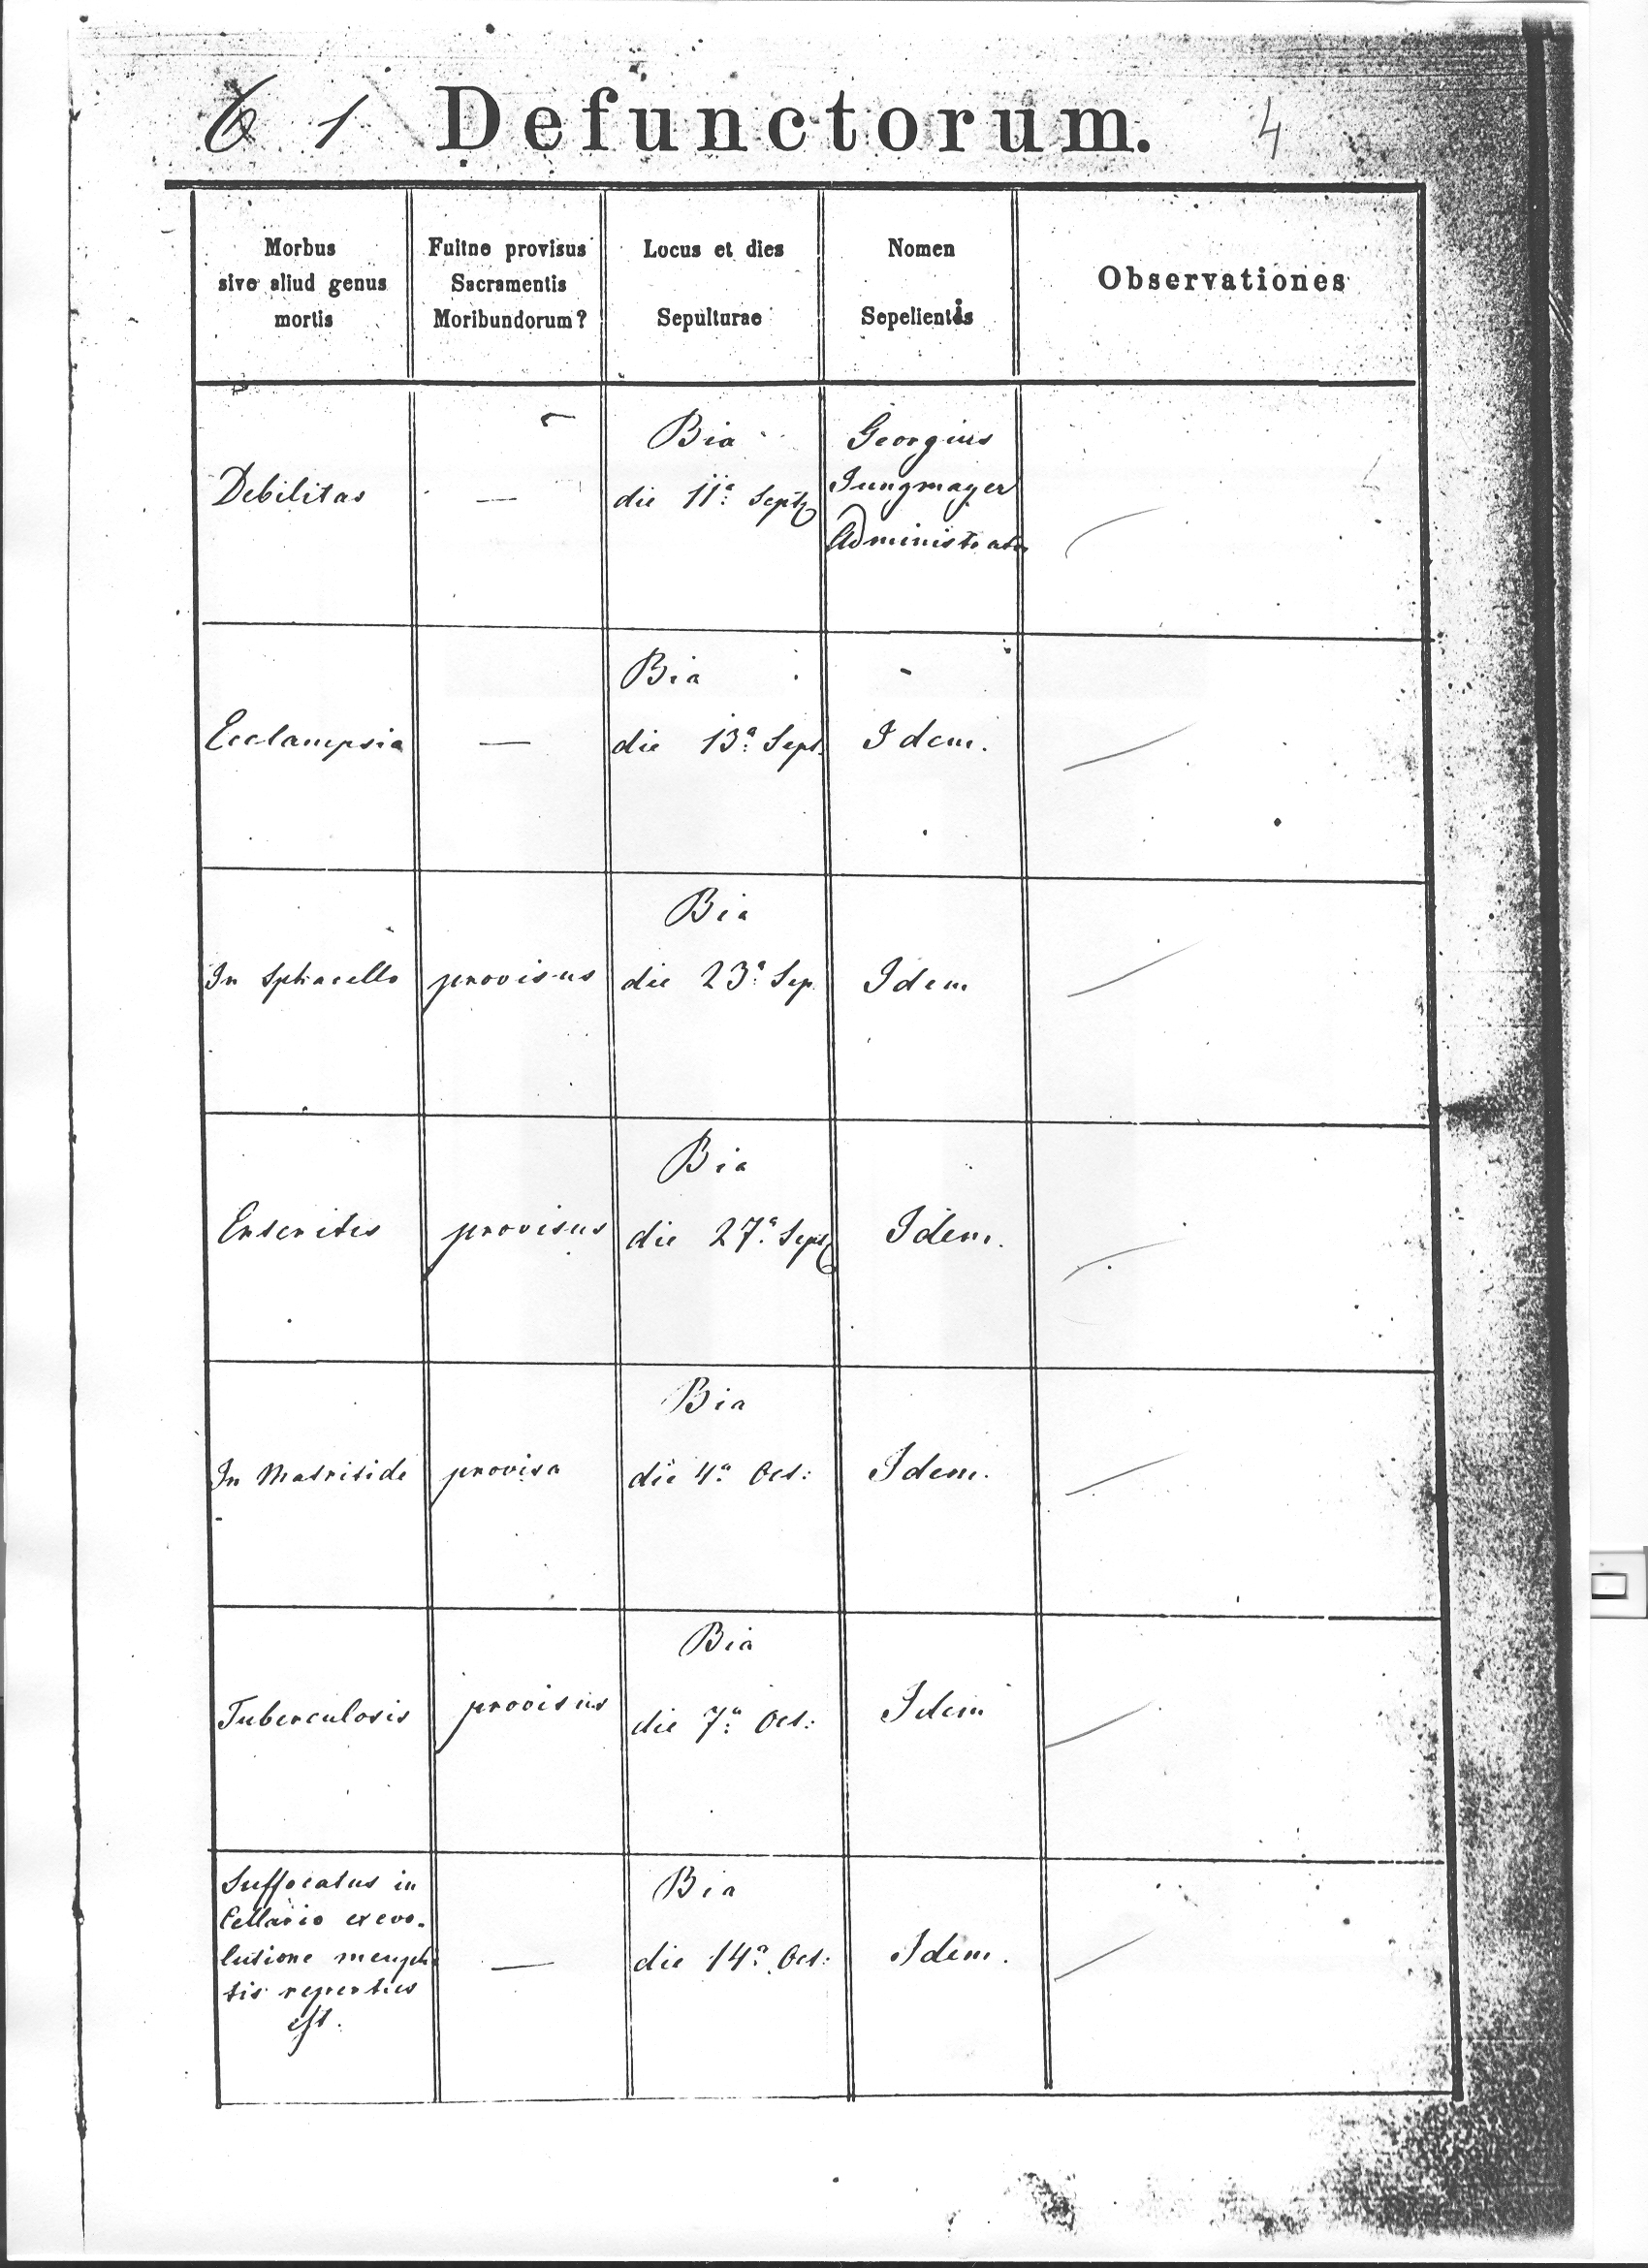 1 Defunctorum. 4
Morbus
sive aliud genus
mortis
Fuitne provisus
Sacramentis
Moribundorum?
Locus et dies
Sepulturae
Nomen
Sepelientis
Observationes
Debilitas
—
Bia
die 11ª Sept
Georgius
Jungmayer
Administrator
Ecclampsia
—
Bia
die 13ª Sept.
Idem.
In Sphacello
provisus
Bia
die 23ª Sep.
Idem
Enteritis
provisus
Bia
die 27ª Sept
Idem.
In Metritide
provisa
Bia
die 4ª Oct:
Idem.
Tuberculosis
provisus
Bia
die 7ª Oct:
Idem
Suffocatus in
Cellario ex evo-
lutione mephi
tis repertus
est.
—
Bia
die 14ª Oct:
Idem.